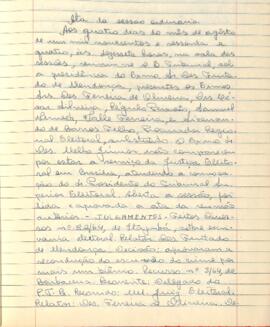 Ata da sessão ordinária
Aos quatro dias do mês de agosto
de um mil novecentos e sessenta e
quatro, às dezesseis horas, na sala das
sessões, reuniu-se o Tribunal, sob
a presidência do Exmo Sr. Des. Furtado
de Mendonça, presentes os Exmos.
Srs. Des. Ferreira de Oliveira, Drs.
Silveira,
Arruda, Valle Ferreira, e
de Barros Filho, Procurador Regio-
nal Eleitoral, ausentes o Exmo Sr.
Des. Mello Júnior não compareceu
por estar a serviço da Justiça Eleito-
ral em Brasília, atendendo a convoca-
ção do Sr. Presidente do Tribunal Su-
perior Eleitoral. Aberta a sessão, foi
lida e aprovada a ata da reunião
anterior. - JULGAMENTOS - Feitos Diver-
sos nº 82/64, de
eleitoral. Relator Des. Furtado
de Mendonça. Decisão: aprovaram a
recondução do escrivão do crime por
mais um biênio. Recurso nº 3/64, de
Barbacena. Recorrente: Delegado do
P.T.B. Recorrido: MM. Juiz Eleitoral.
Relator: Des. Ferreira de Oliveira. De-